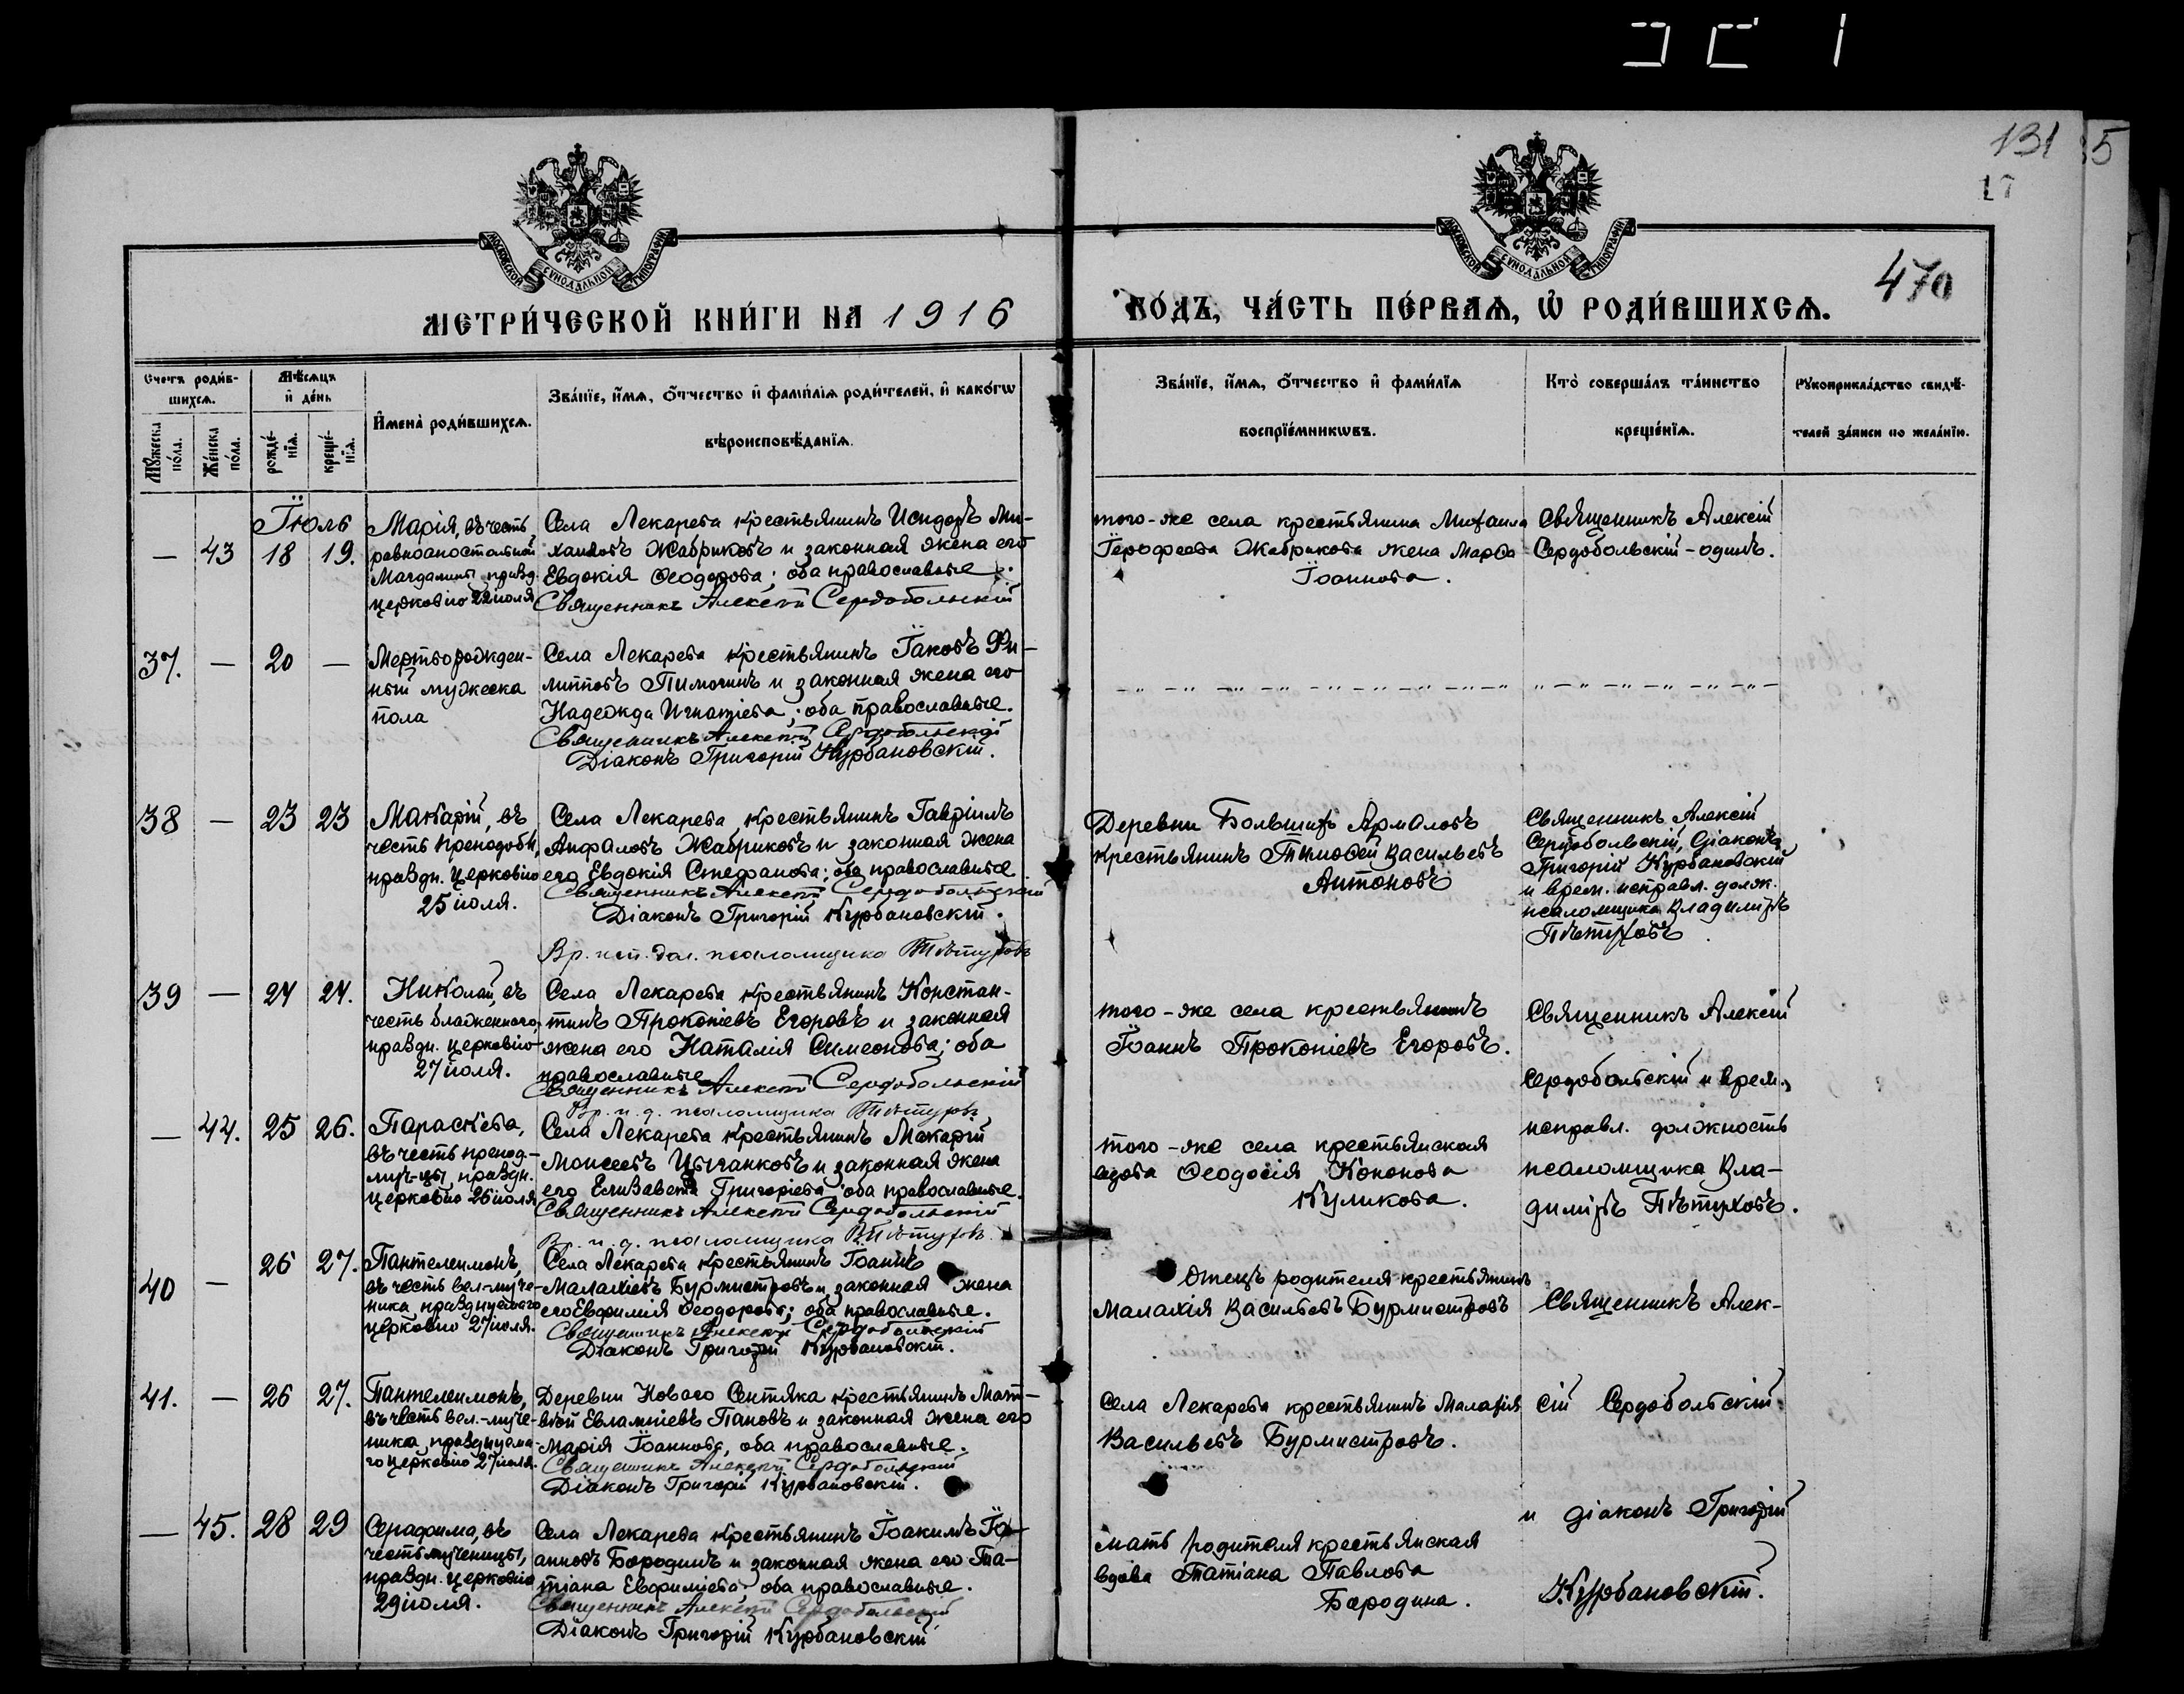 131 5
17
470
МОСКОВСКОЙ СѴНОДАЛЬНОЙ ТИПОГРАФІИ
МОСКОВСКОЙ СѴНОДАЛЬНОЙ ТИПОГРАФІИ
МЕТРИ́ЧЕСКОЙ КНИ́ГИ НА 1916
ГО́ДЪ, ЧА́СТЬ ПЕ́РВАѦ, Ѡ҆ РОДИ́ВШИХСѦ.
Счетъ роди́в-
шихсѧ.
Мꙋ́жеска
по́ла.
Же́нска
по́ла.
Мѣ́сѧцъ
и де́нь
рожде́-
нїѧ.
креще́-
нїѧ.
И҆мена̀ роди́вшихсѧ.
Зва́нїе, и҆́мѧ, ѻ҆́тчество и҆ фами́лїѧ роди́телей, и҆ како́гѡ
вѣроисповѣ́данїѧ.
Зва́нїе, и҆́мѧ, ѻ҆́тчество и҆ фами́лїѧ
воспрїе́мникѡвъ.
Кто̀ соверша́лъ та́инство
креще́нїѧ.
Рꙋкоприкла́дство свидѣ́-
телей за́писи по жела́нїю.
Іюль
— 43 18 19.
Марія, въ честь
равноапостольной
Магдалины празд.
церковію 22 іюля
Села Лекарева крестьянинъ Исидоръ Ми-
хаиловъ Жабриковъ и законная жена его
Евдокія Ѳеодорова; оба православные.
Священникъ Алексій Сердобольскій
того-же села крестьянина Михаила
Іероѳеева Жабрикова жена Марѳа
Іоаннова.
Священникъ Алексій
Сердобольскій - одинъ.
37. — 20 —
Мертворожден-
ный мужеска
пола
Села Лекарева крестьянинъ Іаковъ Фи-
липповъ Пимогинъ и законная жена его
Надежда Игнатіева; оба православные.
Священникъ Алексій Сердобольскій
Діаконъ Григорій Курбановскій.
— „ — „ — „ — „ — „ — „ — „ — „
„ — „ — „ — „ — „ — „ —
38 — 23 23
Макарій, въ
честь преподобн,
праздн. церковію
25 іюля.
Села Лекарева крестьянинъ Гавріилъ
Анфаловъ Жабриковъ и законная жена
его Евдокія Стефанова; оба православные
Священникъ Алексій Сердобольскій
Діаконъ Григорій Курбановскій.
Вр. исп. дол. псаломщика ВПѣтуховъ
Деревни Большихъ Армаловъ
крестьянинъ Тимоѳей Васильевъ
Антоновъ
Священникъ Алексій
Сердобольскій, діаконъ
Григорій Курбановскій
и врем. исправл. долж.
псаломщика Владиміръ
Пѣтуховъ.
39 — 24 24.
Николай, въ
честь блаженнаго,
праздн. церковію
27 іюля.
Села Лекарева крестьянинъ Констан-
тинъ Прокопіевъ Егоровъ и законная
жена его Наталія Симеонова; оба
православные
Священникъ Алексій Сердобольскій
Вр. и. д. псаломщика ВПѣтуховъ
того-же села крестьянинъ
Іоаннъ Прокопіевъ Егоровъ.
Священникъ Алексій
Сердобольскій и врем.
исправл. должность
псаломщика Вла-
диміръ Пѣтуховъ.
— 44. 25 26.
Параскева,
въ честь препод-
муч-цы, праздн.
церковію 26 іюля
Села Лекарева крестьянинъ Макарій
Моисеевъ Цыганковъ и законная жена
его Елизавета Григоріева; оба православные.
Священникъ Алексій Сердобольскій
Вр. и. д. псаломщика ВПѣтуховъ
того-же села крестьянская
вдова Ѳеодосія Кононова
Куликова.
40 — 26 27.
Пантелеимонъ,
въ честь вел-муче-
ника, празднуемаго
церковію 27 іюля.
Села Лекарева крестьянинъ Іоаннъ
Малахіевъ Бурмистровъ и законная жена
его Евфимія Ѳеодорова; оба православные.
Священникъ Алексій Сердобольскій
Діаконъ Григорій Курбановскій.
Отецъ родителя крестьянинъ
Малахія Васильевъ Бурмистровъ
Священникъ Алек-
сій Сердобольскій
и діаконъ Григорій
Курбановскій.
41. — 26 27.
Пантелеимонъ,
въ честь вел.-муче-
ника, празднуема-
го церковію 27 іюля.
Деревни Новаго Сентяка крестьянинъ Мат-
вѣй Евлампіевъ Пановъ и законная жена его
Марія Іоаннова, оба православные.
Священникъ Алексій Сердобольскій
Діаконъ Григорій Курбановскій.
Села Лекарева крестьянинъ Малахія
Васильевъ Бурмистровъ.
— 45. 28 29
Серафима, въ
честь мученицы,
праздн. церковію
29 іюля.
Села Лекарева крестьянинъ Іоакимъ Іо-
анновъ Бородинъ и законная жена его Та-
тіана Евфиміева; оба православные.
Священникъ Алексій Сердобольскій
Діаконъ Григорій Курбановскій
мать родителя крестьянская
вдова Татіана Павлова
Бородина.